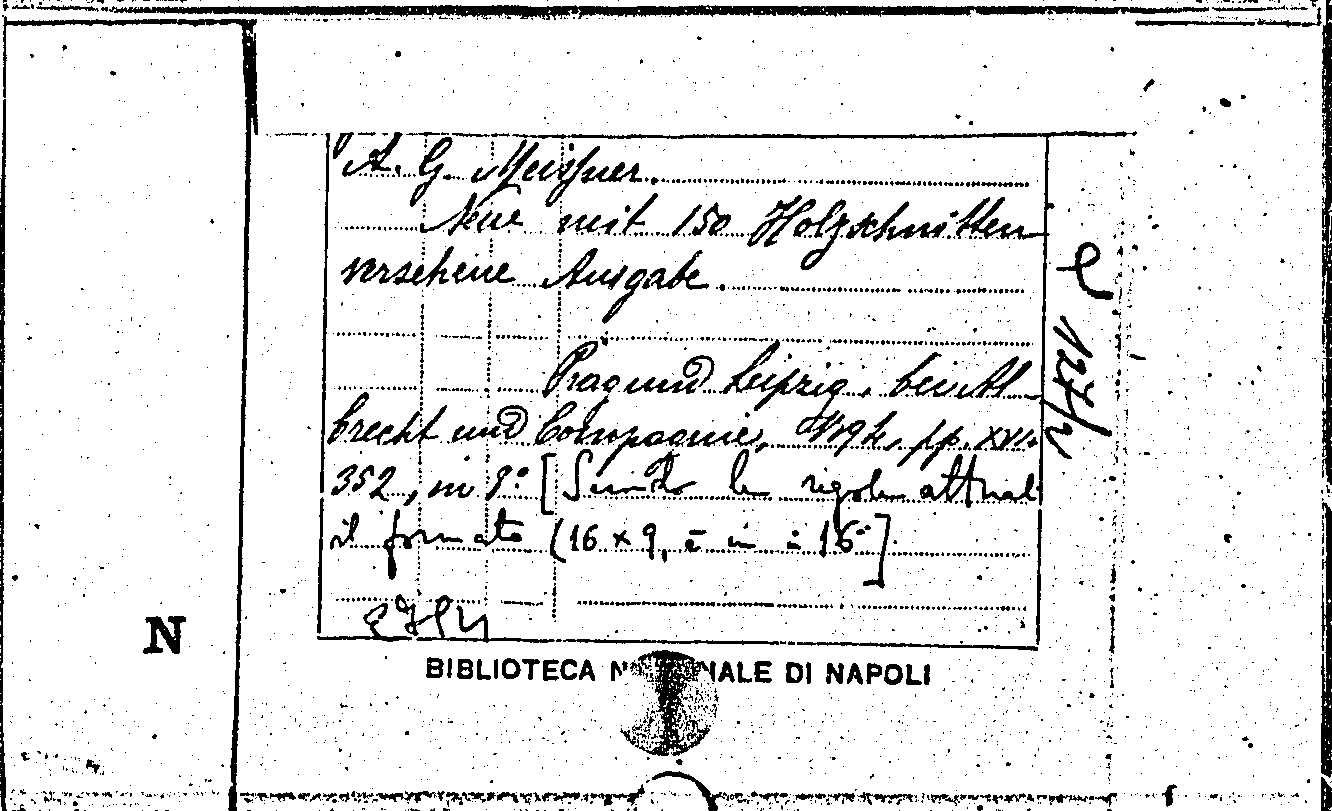 A. G. Meißner.
Neue mit 150 Holzschnitten
versehene Ausgabe.
Prag und Leipzig, bei Al-
brecht und Compagnie, 1794, pp. XVI-
352, in 8° [Secondo le regole attuali
il formato (16 x 9, è in 16°]
N
BIBLIOTECA NALE DI NAPOLI